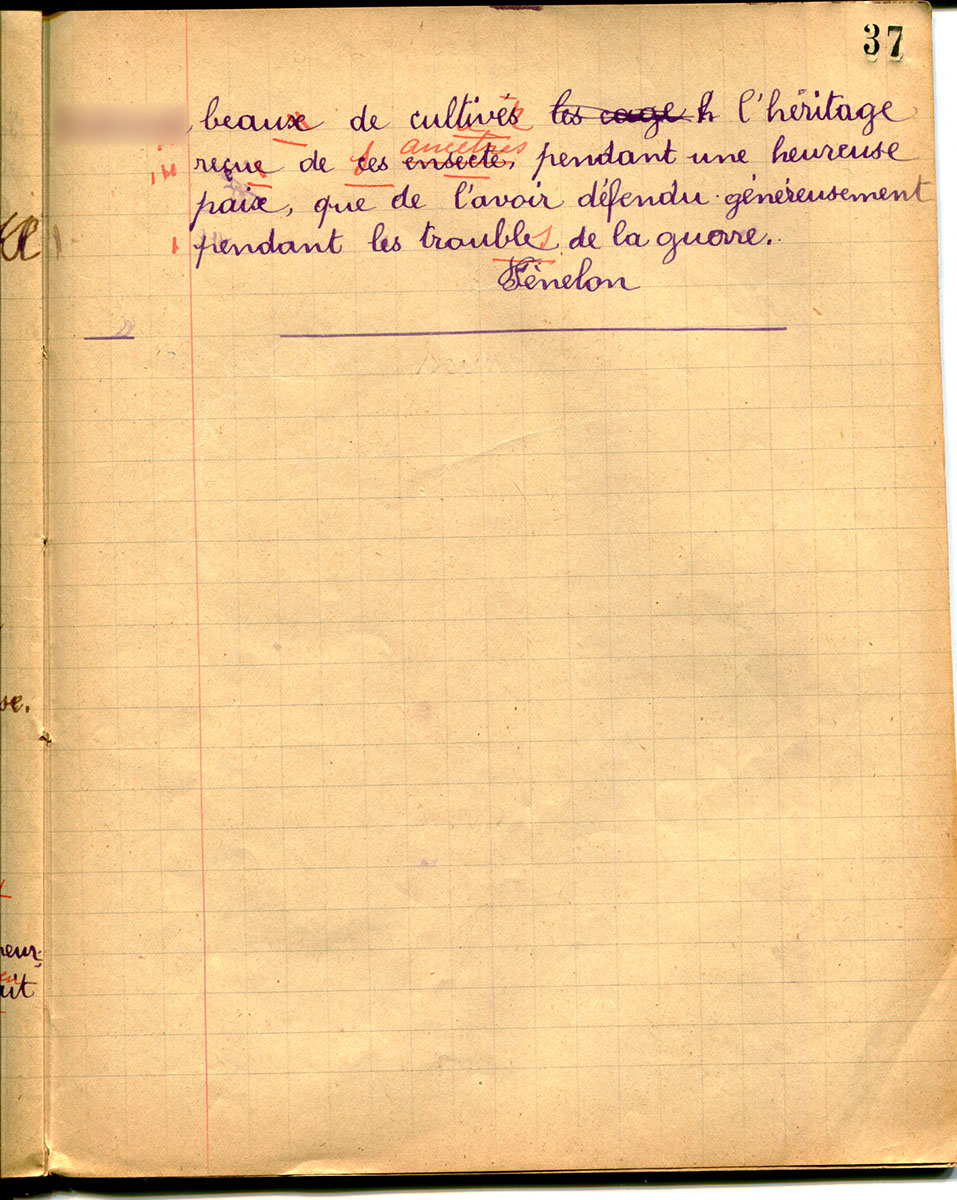 37
beaux de cultivés les cage h l'héritage
ancêtres
reçue de ces ensecte, pendant une heureuse
paix, que de l'avoir défendu généreusement
pendant les troubles de la guerre.
Fénelon
se.